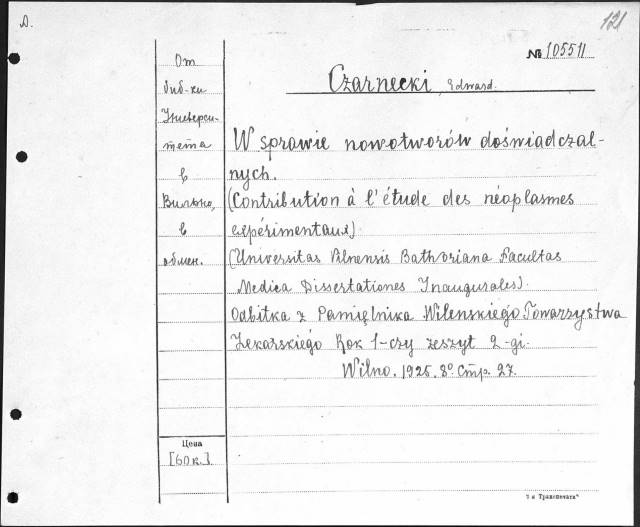 D.
121
№ 105511
Czarnecki Edward.
От
биб-ки
Универси-
тета
в
Вильно,
в
обмен.
W sprawie nowotworów doświadczal-
nych.
(Contribution à l'étude des néoplasmes
expérimentaux)
(Universitas Vilnensis Bathoriana Facultas
Medica Dissertationes Inaugurales).
Odbitka z Pamiętnika Wilenskiego Towarzystwa
Lekarskiego Rok 1-czy zeszyt 2-gi.
Wilno. 1925. 8° стр. 27.
Цена
[60к.]
"Транспечати"